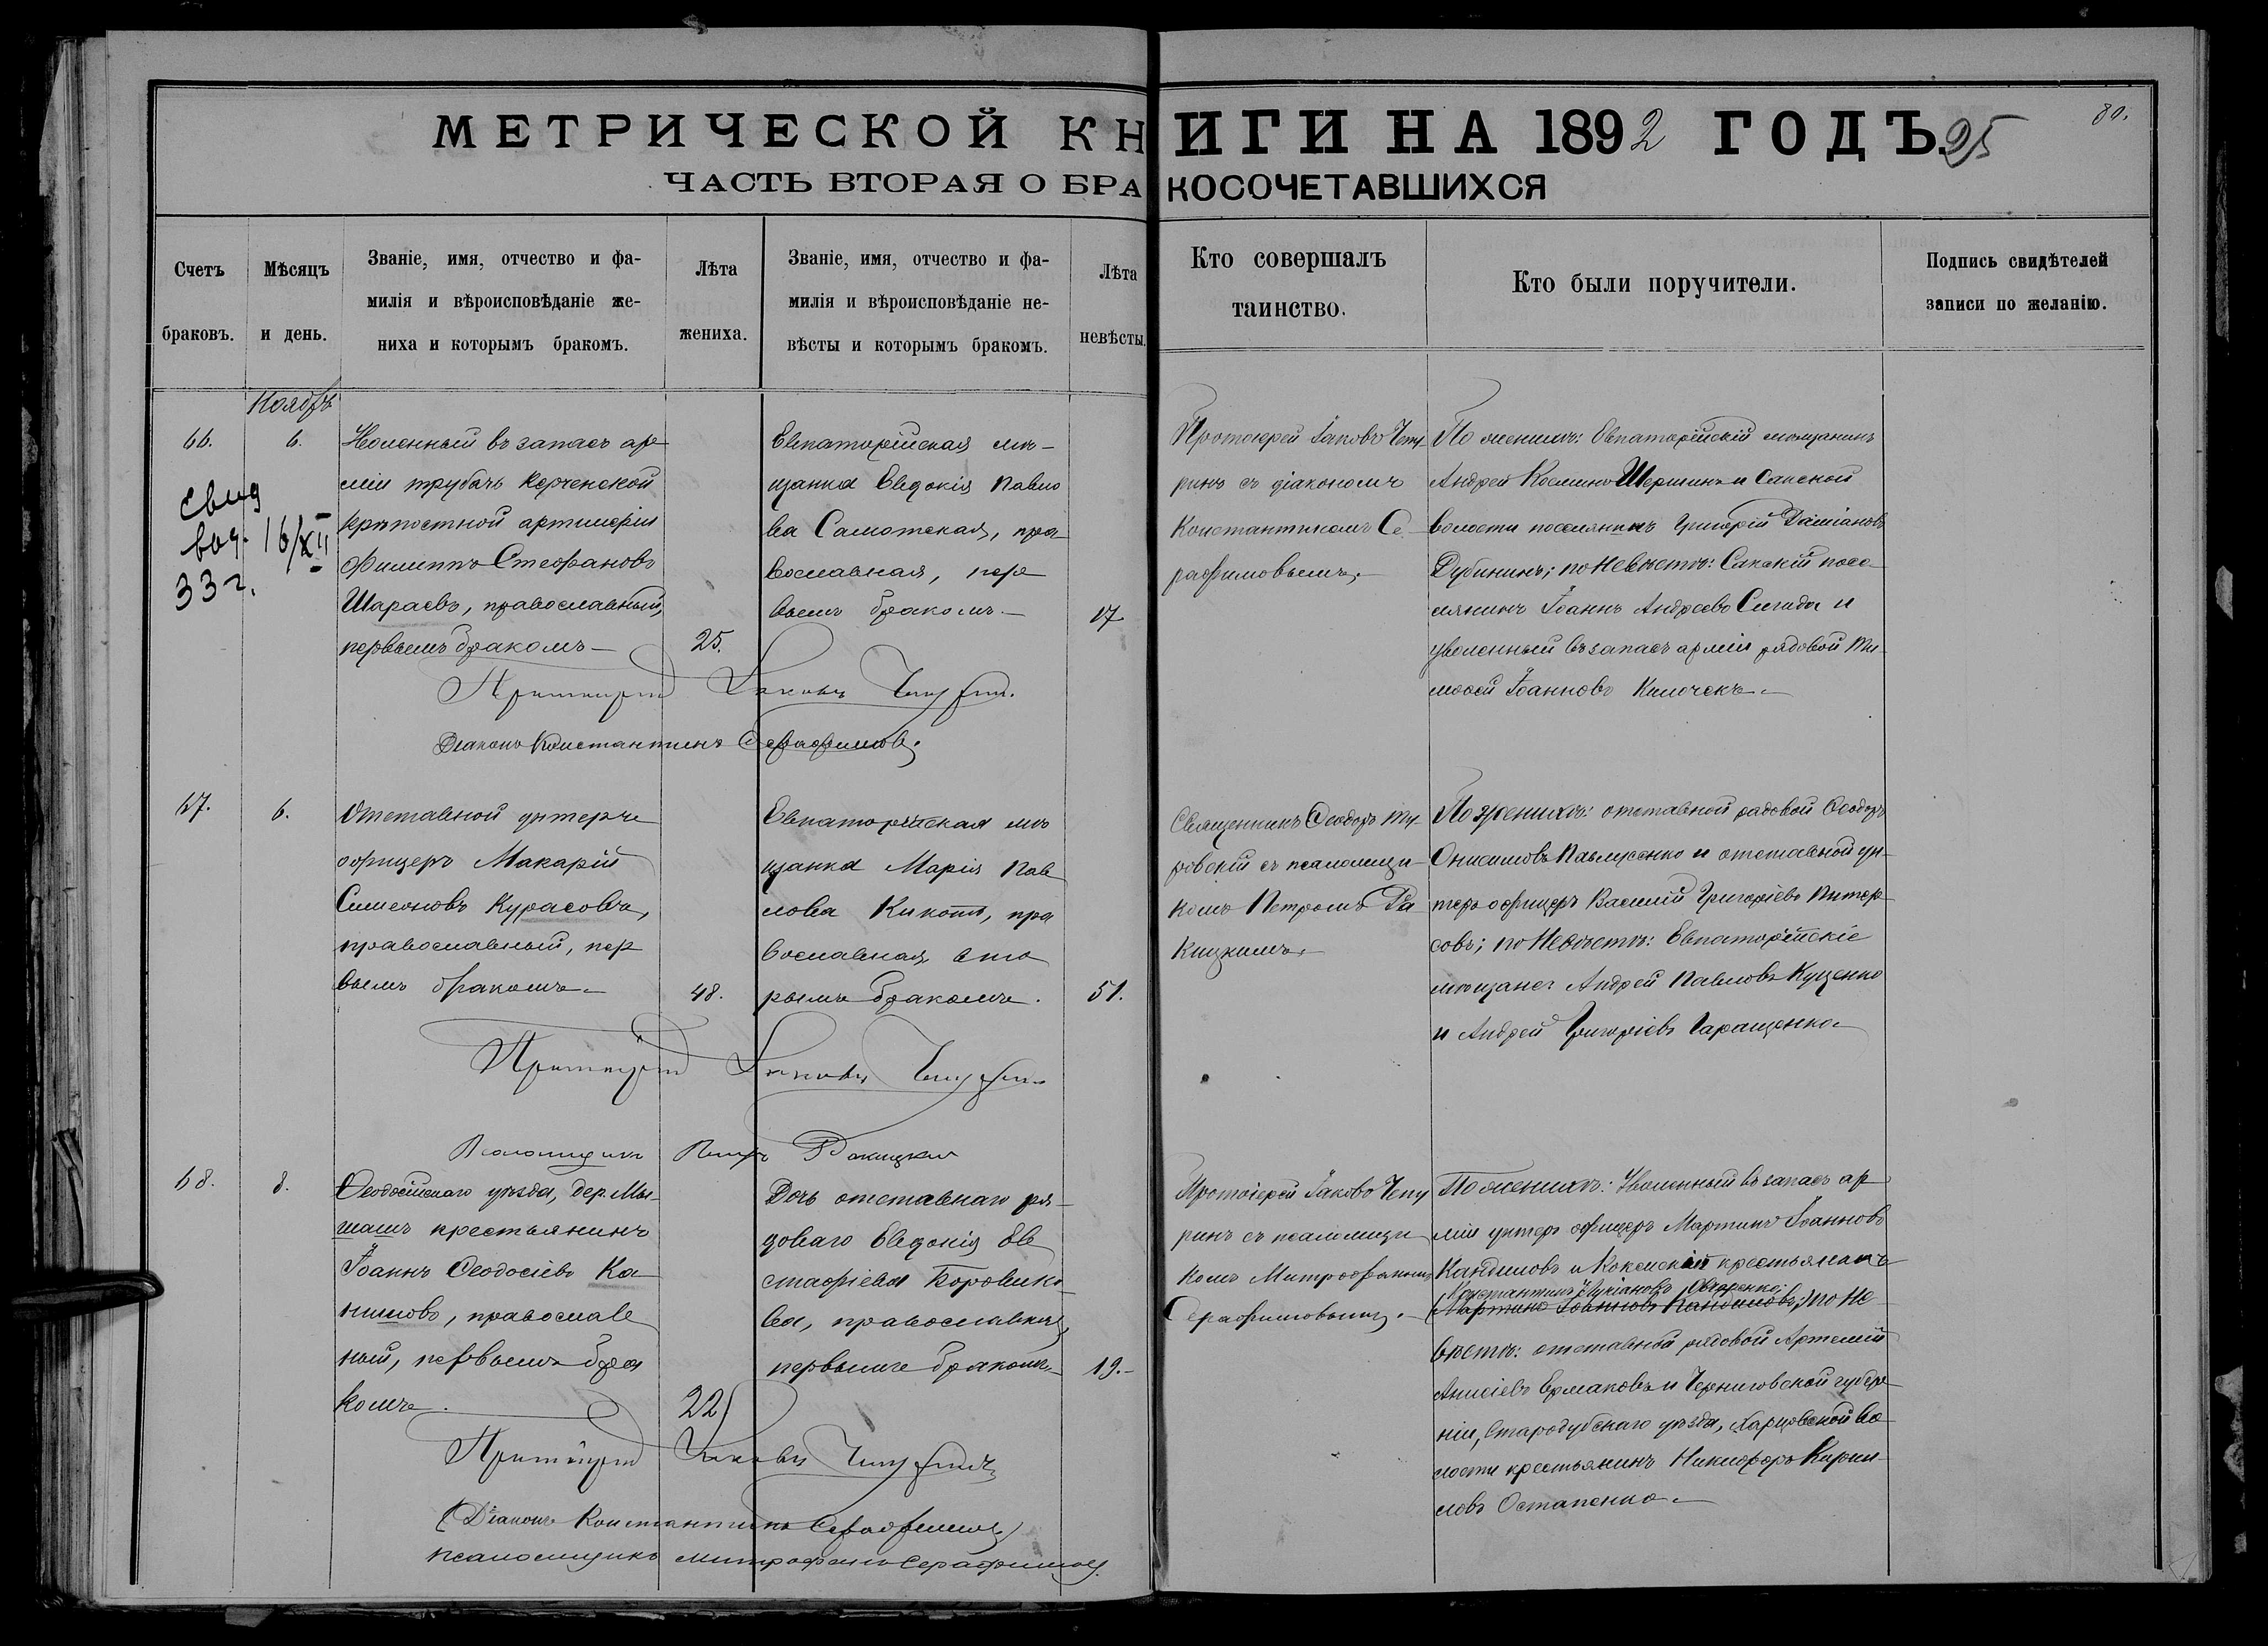 МЕТРИЧЕСКОЙ КНИГИ НА 1892 ГОДЪ.
25
80.
ЧАСТЬ ВТОРАЯ О БРАКОСОЧЕТАВШИХСЯ
Счетъ
браковъ.
Мѣсяцъ
и день.
Званіе, имя, отчество и фа-
милія и вѣроисповѣданіе же-
ниха и которымъ бракомъ.
Лѣта
жениха.
Званіе, имя, отчество и фа-
милія и вѣроисповѣданіе не-
вѣсты и которымъ бракомъ.
Лѣта
невѣсты.
Кто совершалъ
таинство.
Кто были поручители.
Подпись свидѣтелей
записи по желанію.
Ноябрь
66.
6.
свид
выд. 16/XII
33 г.
Уволенный въ запасъ ар
міи трубачъ Керченской
крѣпостной артилеріи
Филиппъ Стефановъ
Шараевъ, православный,
первымъ бракомъ
25.
Евпаторійская мѣ-
щанка Евдокія Павло
ва Самотская, пра
вославная, пер
вымъ бракомъ
17
Протоіерей Іаковъ Чепу
ринъ съ діакономъ
Константиномъ Се
рафимовымъ.
По женихѣ: Евпаторійскій мѣщанинъ
Андрей Космино Шершинъ и Сакской
волости поселянинъ Григорій Даміановъ
Дубининъ; по Невѣстѣ: Сакскій посе
лянинъ Іоаннъ Андреевъ Сигида и
уволенный въ запасъ арміи рядовой Ти
моѳей Іоанновъ Килочекъ
Протоіерей Іаковъ Чепуринъ
Діаконъ Константинъ Серафимовъ
67.
6.
Отставной унтеръ
офицеръ Макарій
Симеоновъ Курасовъ,
православный, пер
вымъ бракомъ
48.
Евпаторійская мѣ
щанка Марія Пав
лова Кикоть, пра
вославная вто
рымъ бракомъ.
51.
Священникъ Ѳеодоръ Ту-
ровскій съ псаломщи
комъ Петромъ Ра
кицкимъ
По женихѣ: отставной рядовой Ѳеодоръ
Онисимовъ Павлусенко и отставной ун
теръ офицеръ Василій Григоріевъ Питер
совъ; по Невѣстѣ: Евпаторійскіе
мѣщане: Андрей Павловъ Куценко
и Андрей Григоріевъ Гаращенко
Протоіерей Іаковъ Чепуринъ
Псаломщикъ Петръ Ракицкій
68.
8.
Ѳеодосійскаго уѣзда, дер. Мы
шашъ крестьянинъ
Іоаннъ Ѳеодосіевъ Ка
нимовъ, православ
ный, первымъ бра
комъ.
22
Дочь отставнаго ря
доваго Евдокія Ев
стафіева Боровико
ва, православная,
первымъ бракомъ
19.
Протоіерей Іаковъ Чепу
ринъ съ псаломщи
комъ Митрофаномъ
Серафимовымъ.
По женихѣ: Уволенный въ запасъ ар
міи унтеръ офицеръ Мартинъ Іоанновъ
Кандимовъ и крестьянинъ
Константинъ Лукіановъ
Мартинъ Іоанновъ Кандимовъ; по Не
вѣстѣ: отставный рядовой Артемій
Анисіевъ Ермаковъ и Черниговской губер
ніи, Стародубскаго уѣзда, во
лости крестьянинъ Никифоръ Кирил-
ловъ Остапенко
Протоіерей Іаковъ Чепуринъ
Діаконъ Константинъ Серафимовъ
псаломщикъ Митрофанъ Серафимовъ.